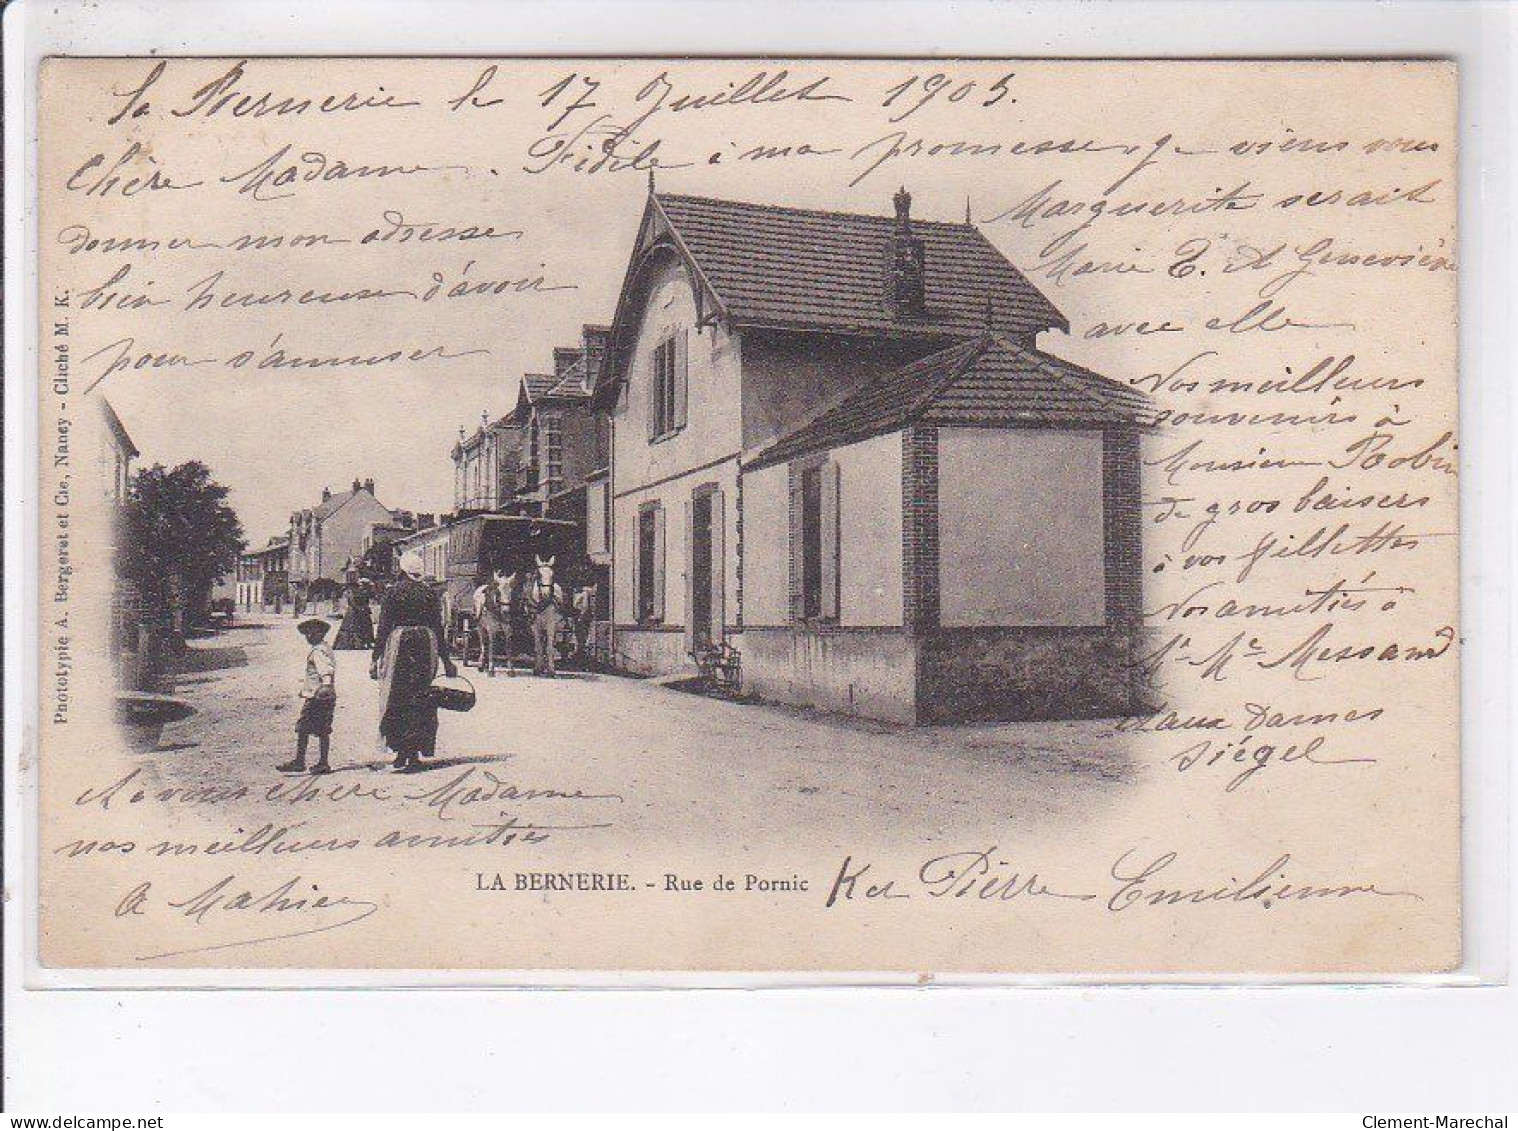 La Bernerie le 17 Juillet 1903.
Chère Madame. Fidèle à ma promesse, je viens vous
donner mon adresse
Marguerite serait
bien heureuse d'avoir
Marie T. et Geneviève
pour s'amuser
avec elle
Nos meilleurs
souvenirs à
Monsieur Robin
de gros baisers
à vos fillettes
Nos amitiés à
Mr Me Messand
et aux Dames
Siégel
Et à vous chère Madame
nos meilleurs amitiés
A Mahieu
LA BERNERIE. - Rue de Pornic
Ker Pierre Emilienne
Phototypie A. Bergeret et Cie, Nancy - Cliché M. K.
Clement-Marechal